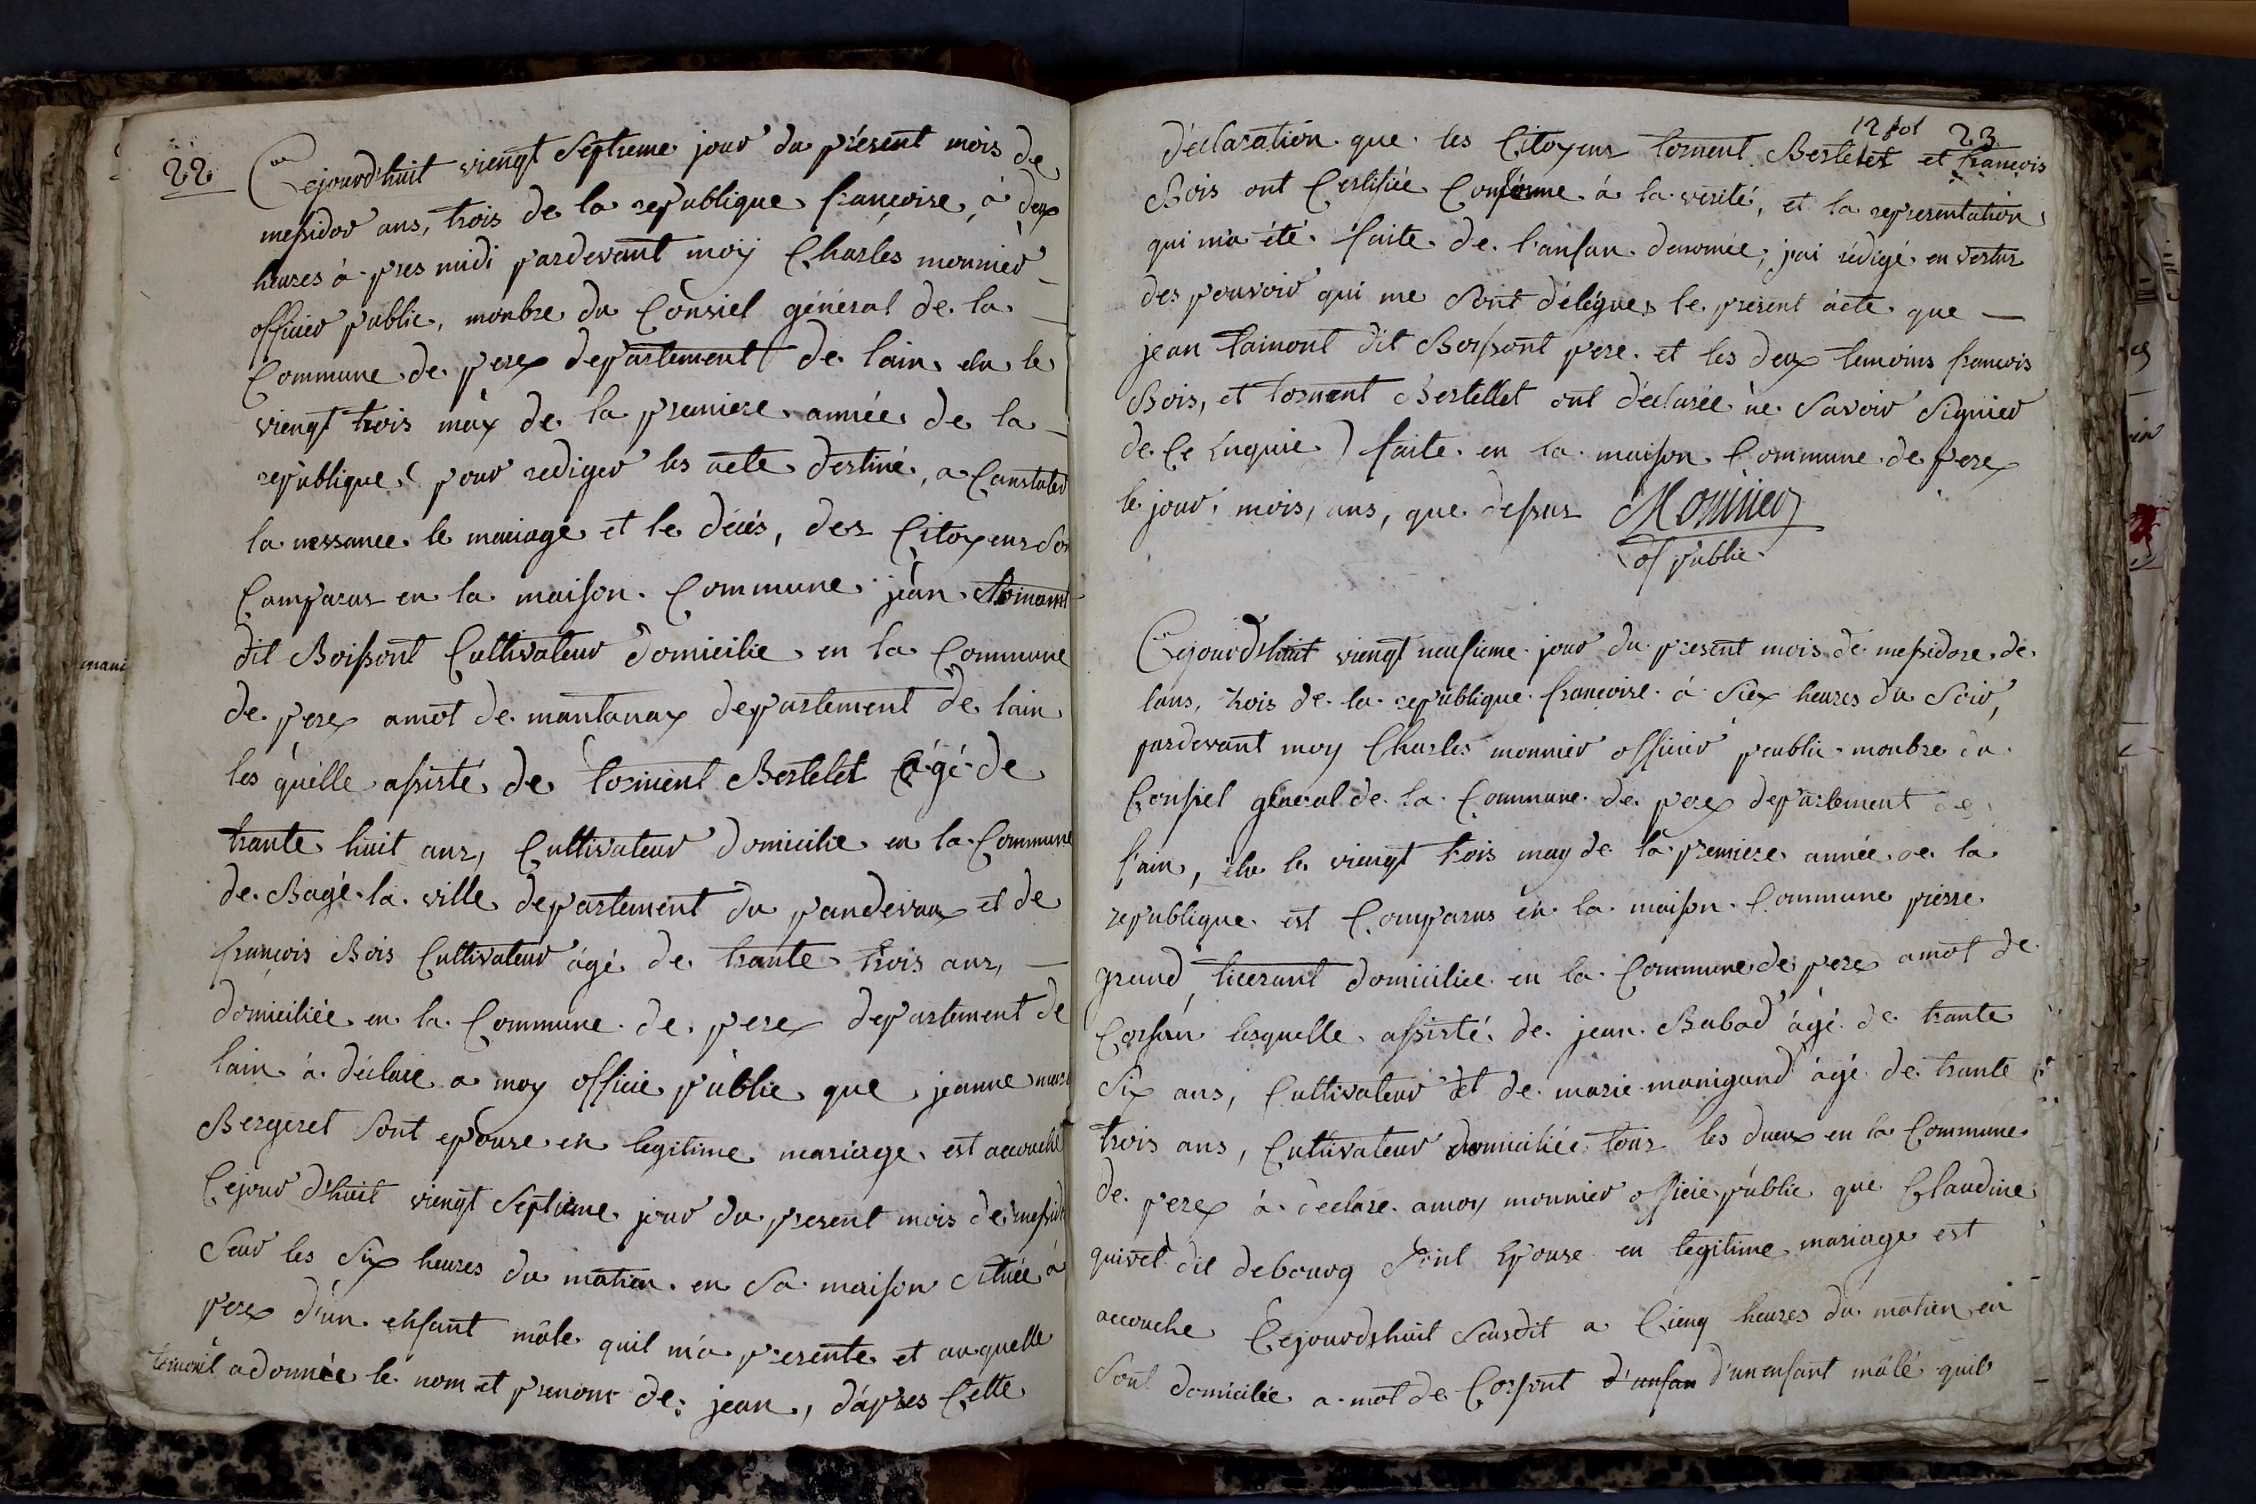 22
Cejourd'huit viengt septieme jour du présent mois de
messidor ans, trois de la republique françoise, à deux
heures à pres midi pardevant moy Charles monnier
officier public, monbre du Consiel général de la
Commune de perex departement de lain elu le
viengt trois may de la premiere année de la
republique pour rediger les acte destiné, a Constater
la nessance le mariage et le décés, des Citoyens son
Comparus en la maison Commune jean
dit Boissont Cultivateur domicilie en la Commune
de perex amot de mantanax departement de lain
les quélle assisté de torment Bertelet âgé de
trante huit ans, Cultivateur domicilie en la Commune
de Bagé la ville departement du pandevaux et de
françois Bois Cultivateur âgé de trante trois ans,
domiciliée en la Commune de perex departement de
lain à déclare a moy officie public que jeanne
Bergeret sont epouse en legitime mariage est accouché
Cejour d'huit viengt septieme jour du present mois de messid
seur les six heures du matien en sa maison située à
perex d'un enfant mâle quil m'a presente et auquelle
adonnée le nom et prenom de jean, d'apres Cette
12 fol 23
déclaration que les Citoyens torment Bertelet et francois
Bois ont Certifiée Conforme à la verité, et la representation
qui m'a été faite de l'anfan denomée, j'ai rédigé en vertus
des pouvoir qui me sont délégues le present acte que
jean taimont dit Boissont pere et les deux temoins francois
Bois, et torment Bertellet ont déclarée ne savoir signier
de Ce Enquie) faite en la maison Commune de perex
le jour, mois, ans, que dessus Monnier
of public
Cejourd'huit viengt neufieme jour du present mois de messidore de
lans, trois de la republique francoise à siex heures du soir,
pardevant moy Charles monnier officier peublic monbre du
Consiel géneral de la Commune de perex departement de
l'ain, elu le viengt trois may de la premiere année de la
republique est Comparus en la maison Commune pierre
grand, ticerant domiciliee en la Commune de perex amot de
Corsan lesquelle assisté de jean Babad âgé de trante
six ans, Cultivateur et de marie manigand âgé de trante
trois ans, Cultivateur domiciliée tous les dueux en la Commune
de perex à déclare amoy monnier officie public que Claudine
quivet dit debourg sont Epouse en legitime mariage est
accouche Cejourdshuit sousdit a Cienq heures du matien en
sont domicilie a mot de Corsont d'anfan d'un enfant mâlé quil